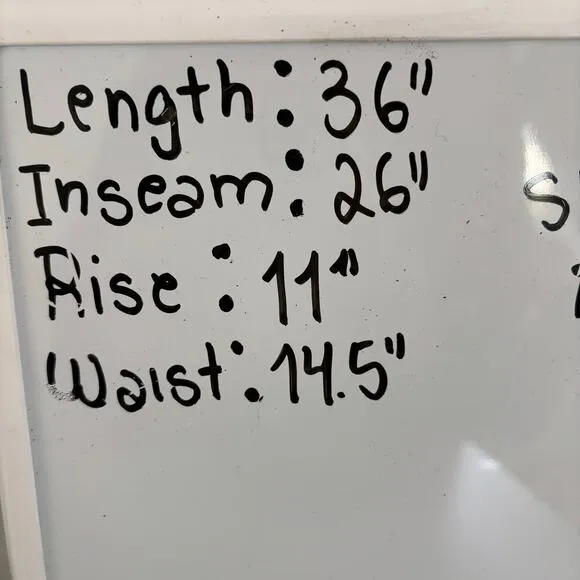 Length: 36"
Inseam: 26"
Rise: 11"
Waist: 14.5"